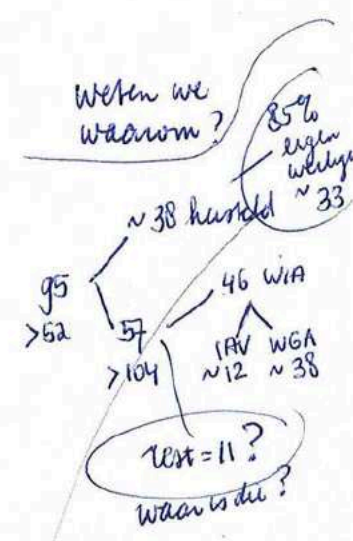 weten we
waarom?
85%
eigen
werkgever
~ 33
~ 38 hersteld
95
>52
57
>104
46 WIA
IAV WGA
~12 ~38
rest = 11?
waar is die?